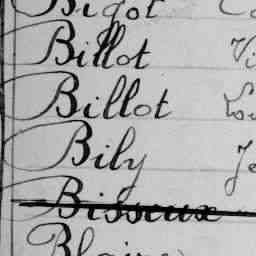 Bigot
Billot Vi
Billot Lou
Bily Je
Bisseux
Blaire